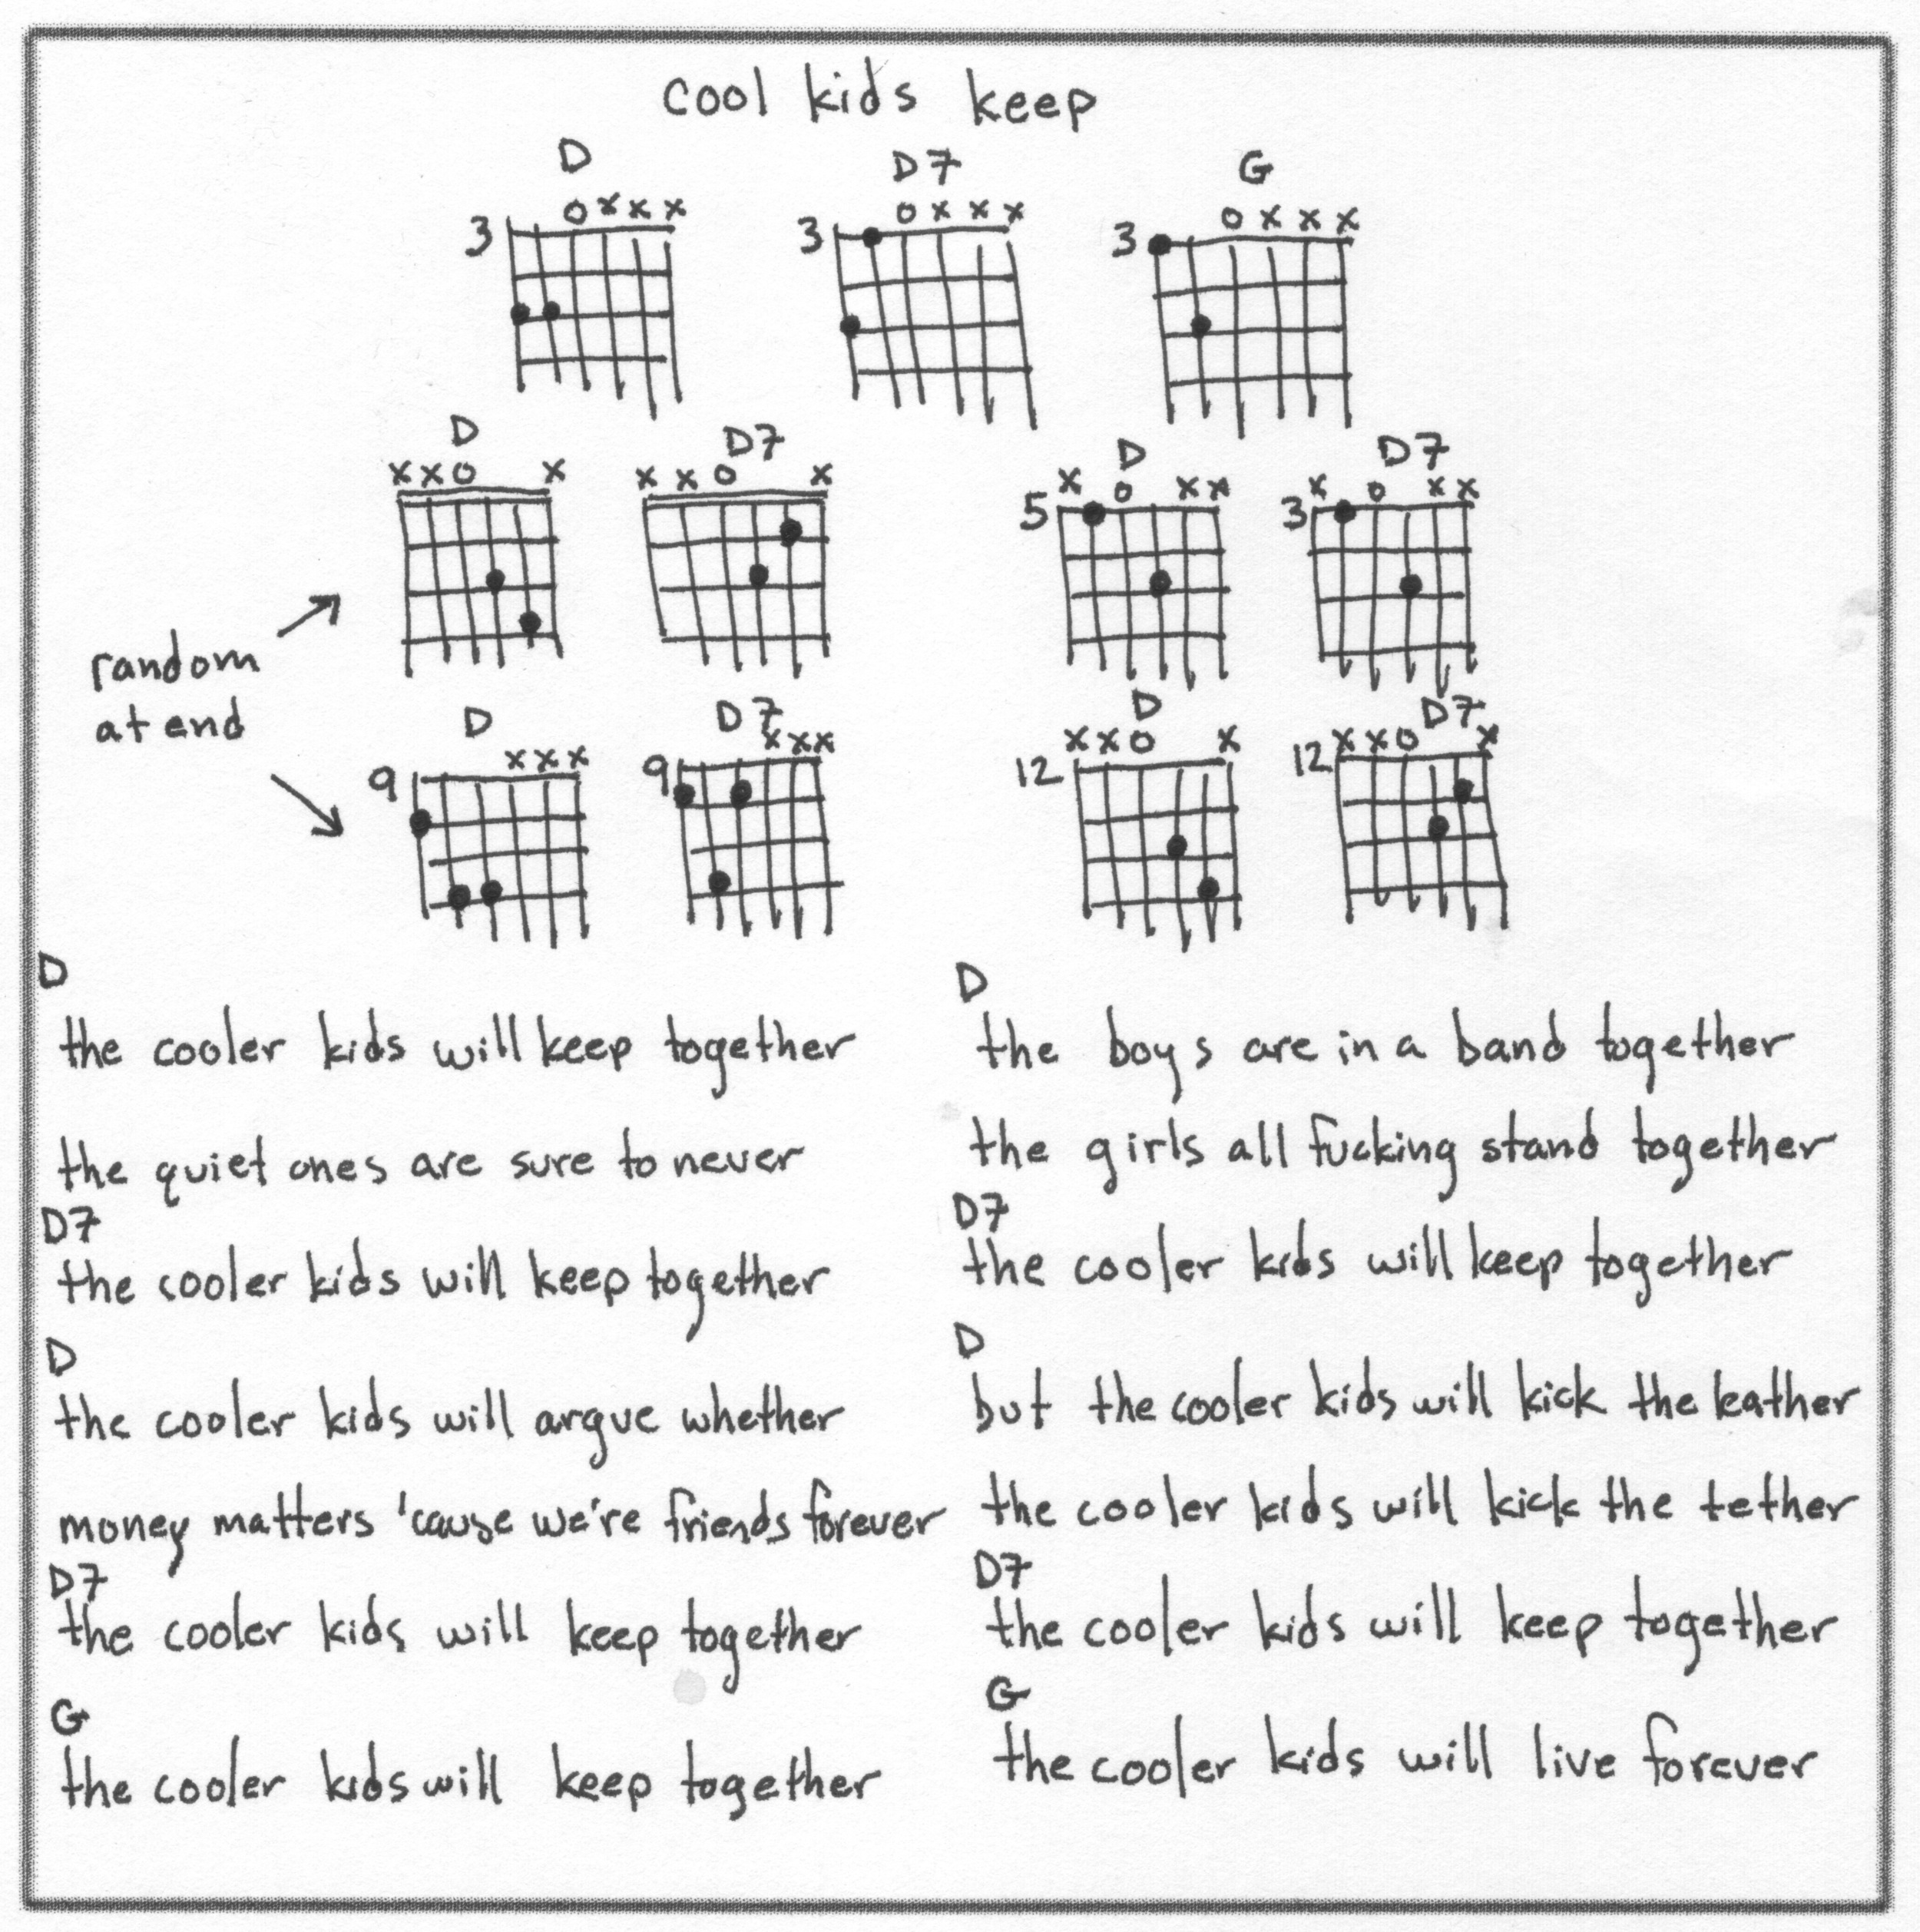 cool kids keep
D D7 G
o x x x o x x x o x x x
3 3 3
D D7 D D7
x x o x x x o x x o x x x o x x
5 3
random
at end
D D7 D D7
x x x x x x x x o x x x o x
9 9 12 12
D
the cooler kids will keep together
the quiet ones are sure to never
D7
the cooler kids will keep together
D
the cooler kids will argue whether
money matters 'cause we're friends forever
D7
the cooler kids will keep together
G
the cooler kids will keep together
D
the boys are in a band together
the girls all fucking stand together
D7
the cooler kids will keep together
D
but the cooler kids will kick the leather
the cooler kids will kick the tether
D7
the cooler kids will keep together
G
the cooler kids will live forever